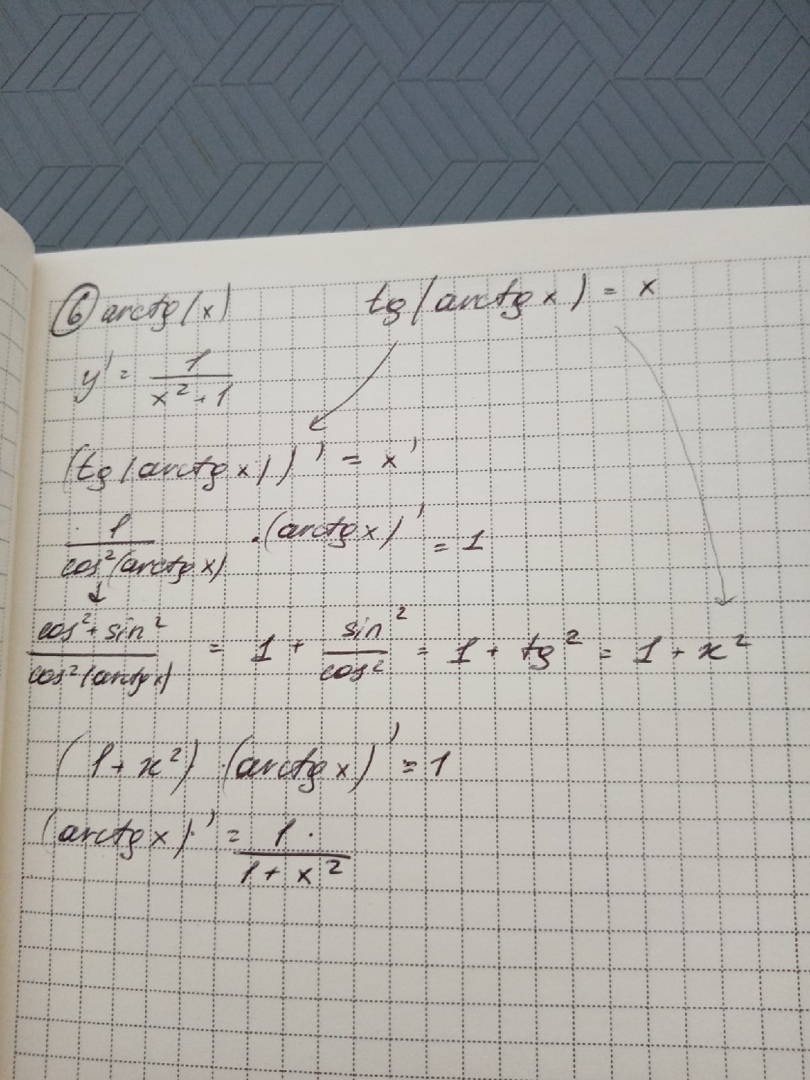 ⑥ arctg(x) tg(arctg x) = x
y' = 1/(x² + 1)
(tg(arctg x))' = x'
1/cos²(arctg x) · (arctg x)' = 1
(cos² + sin²)/cos²(arctg x) = 1 + sin²/cos² = 1 + tg² = 1 + x²
(1 + x²) · (arctg x)' = 1
(arctg x)' = 1/(1 + x²)